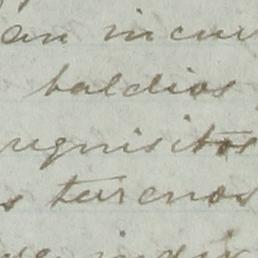 an incur
baldios
uquisitos
s terrenos